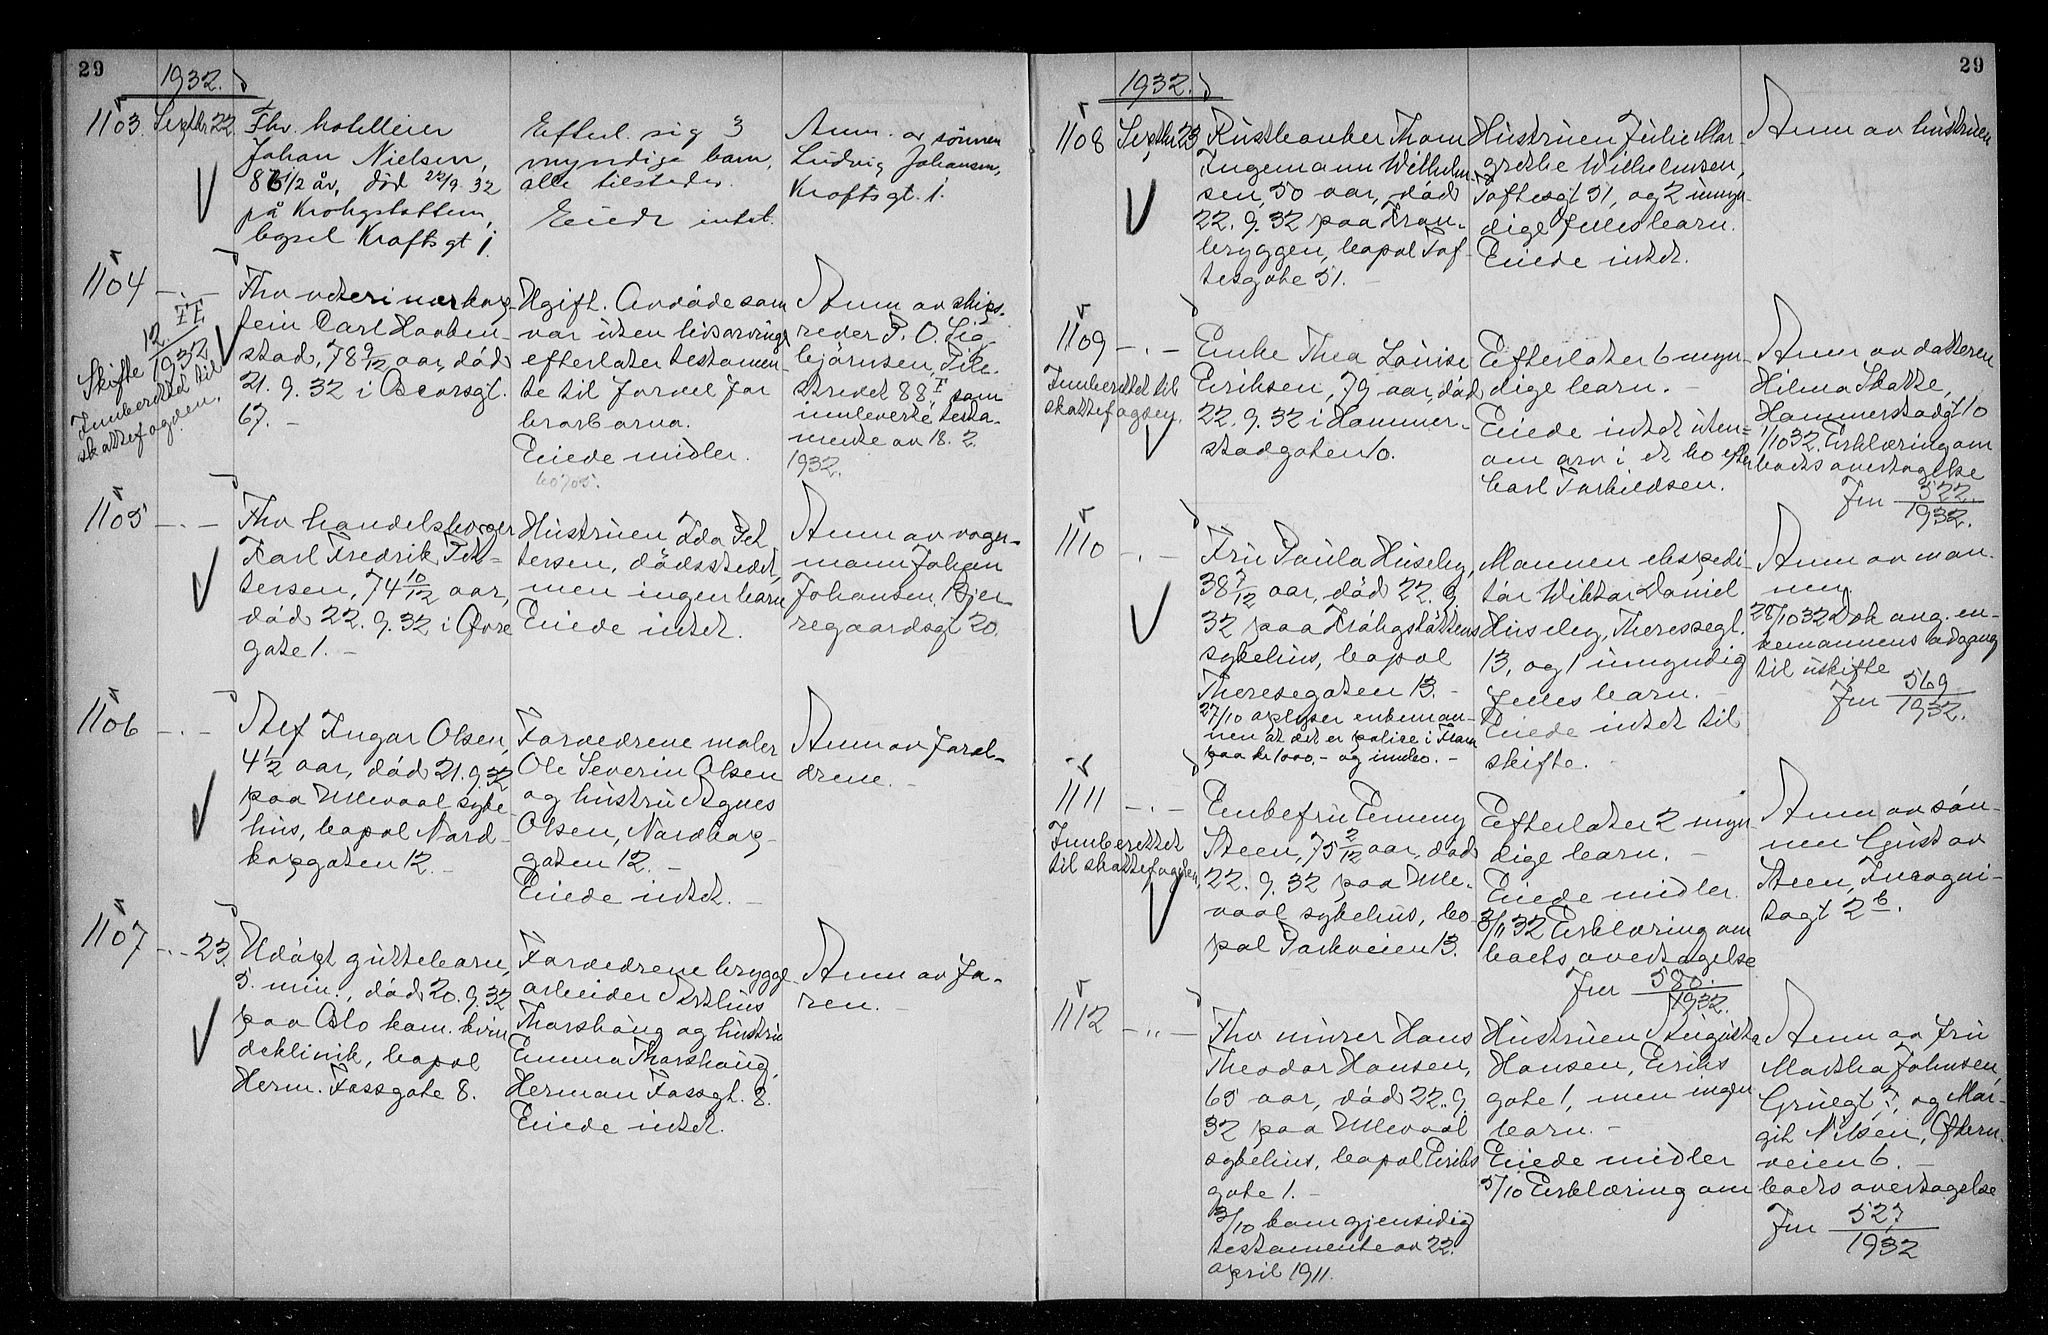 29
1932.
1103. Septbr 22
Fhv. hotelleier
Johan Nielsen,
86 1/2 år, død 22/9. 32
på Krohgstøtten,
bopæl Kroftsgt 1.
Efterl. sig 3
myndige barn,
alle tilstede.
Eiede intet.
Anm. av sønnen
Ludvig Johansen,
Kroftsgt. 1.
1104 -.-
Skifte 12 1932
Innberettet til
skattefogden.
Fhv veterinærkap-
tein Carl Hovben-
stad, 78 9/12 aar, død
21. 9. 32 i Oscarsgt.
67. -
Ugift. Avdøde som
var uten livsarvinge
efterlater testamen-
te til fordel for
brorbarna.
Eiede midler.
Anm av skips-
reder P. O. Sig-
bjørnsen, Pile-
stredet 88 I, som
innleverte testa-
mente av 18. 2.
1932.
1105 -.-
Fhv handelsborger
Karl Fredrik Pet-
tersen, 74 10/12 aar,
død 22. 9. 32 i Øvre
gate 1. -
Hustruen Ida Pet
tersen, dødsstedet,
men ingen barn
Eiede intet.
Anm av vogn-
mann Johan
Johansen, Bjer-
regaardsgt 20.
1106 -.-
Alf Ingar Olsen,
4 1/2 aar, død 21. 9. 32
paa Ullevaal syke-
hus, bopæl Nord-
kapgaten 12. -
Forældrene maler
Ole Severin Olsen
og hustru Agnes
Olsen, Nordkap-
gaten 12. -
Eiede intet. -
Anm av foræl-
drene. -
1107 -.- 23.
Udøpt guttebarn,
5. min., død 20. 9. 32
paa Oslo kom. kvin
deklinik, bopæl
Herm. Fossgate 8.
Forældrene brygge
arbeider Asthus
Thorshaug og hustru
Emma Thorshaug,
Herman Fossgt. 8.
Eiede intet.
Anm av fa-
ren. -
29
1932.
1108 Septbr 23
Rustbanker Thom
Ingemann Wilhelm-
sen, 50 aar, død
22. 9. 32 paa Kran-
bryggen, bopæl Tof-
tesgate 51. -
Hustruen Julie Mar-
grethe Wilhelmsen,
Toftesgt 51, og 2 umyn-
dige fellesbarn.
Eiede intet.
Anm av hustruen
1109 -.-
Innberettet til
skattefogden.
Enke Thea Louise
Eriksen, 79 aar, død
22. 9. 32 i Hammer-
stadgaten 10.
Efterlater 6 myn-
dige barn. -
Eiede intet uten-
om arv i et bo efter
Carl Torkildsen.
Anm av datteren
Hilma Skatte,
Hammerstadgt 10
1/10 32. Erklæring om
boets overtagelse
Jnr 522/1932.
1110 -.-
Fru Paula Huseby,
38 7/12 aar, død 22. 9.
32 paa Krohgstøttens
sykehus, bopæl
Theresegaten 13. -
27/10 oplyser enkeman-
nen at det er polise i Fram
paa kr 1000,- og innbo. -
Mannen ekspedi-
tør Wiktor Daniel
Huseby, Theresegt.
13, og 1 umyndig
fellesbarn. -
Eiede intet til
skifte. -
Anm av man-
nen.
28/10 32 Dok ang. en-
kemannens adgang
til uskifte
Jnr 569/1932.
1111 -.-
Innberettet
til skattefogden.
Enkefru Emmy
Steen, 75 2/12 aar, død
22. 9. 32 paa Ulle-
vaal sykehus, bo-
pæl Parkveien 13.
Efterlater 2 myn-
dige barn. -
Eiede midler.
3/11 32 Erklæring om
boets overtagelse
Jnr 580./1932.
Anm av søn-
nen Gustav
Steen, Incogni-
togt 2 b.
1112 -"-
Fhv murer Hans
Theodor Hansen,
65 aar, død 22. 9.
32 paa Ullevaal
sykehus, bopæl Eriks
gate 1. -
3/10 kom gjensidig
testamente av 22.
april 1911.
Hustruen Augusta
Hansen, Eriks
gate 1, men ingen
barn. -
Eiede midler
5/10 Erklæring om
Anm av fru
Martha Johnsen,
og Mar-
git Nilsen, Økern-
veien 6. -
boets overtagelse
Jnr 527/1932